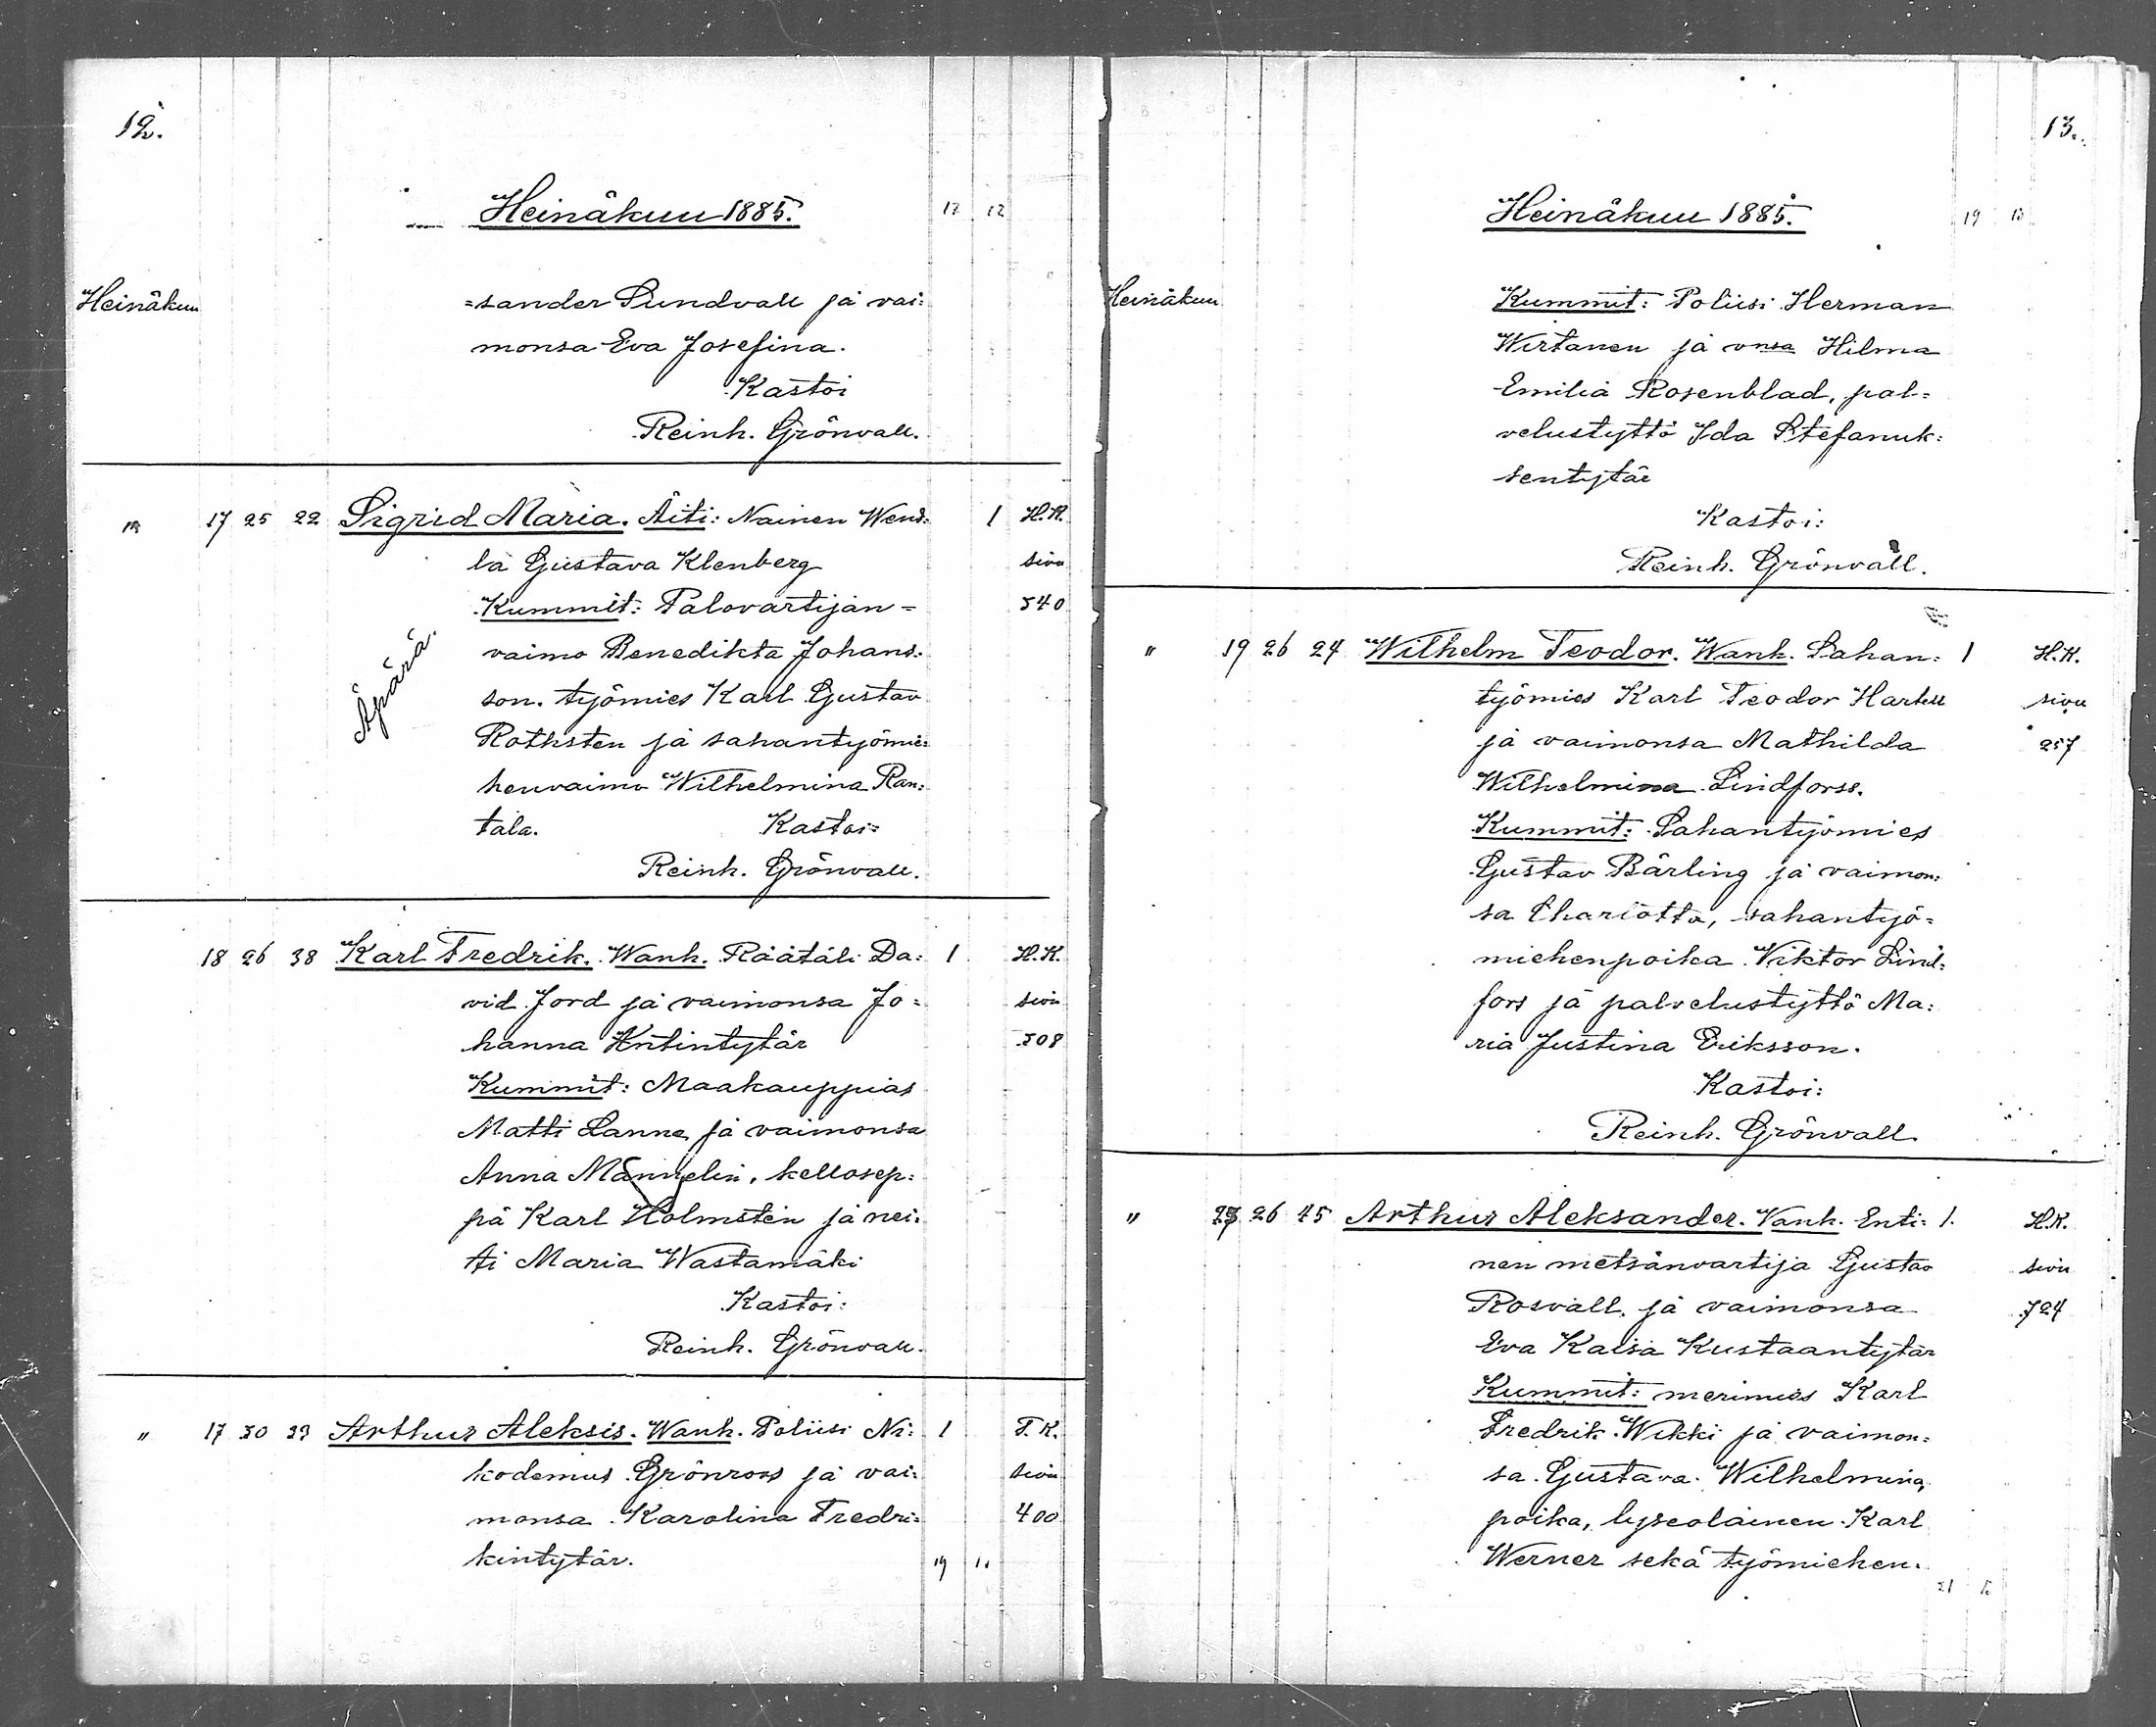 12.
Heinäkuu 1885. 17 12
Heinäkuu =sander Sundvall ja vai=
monsa Eva Josefina.
Kastoi
Reinh. Grönvall.
" 17 25 22 Sigrid Maria. Äiti: Nainen Wend= 1 H.K.
la Gustava Klenberg sivu
Kummit: Palovartijan= 540
vaimo Benedikta Johans=
Äpärä.
son. työmies Karl Gustav
Rothsten ja sahantyömie=
henvaimo Wilhelmina Ran=
tala. Kastoi:
Reinh. Grönvall.
18 26 38 Karl Fredrik. Wanh. Räätäli Da= 1 H.K.
vid Jord ja vaimonsa Jo= sivu
hanna Antintytär 508
Kummit: Maakauppias
Matti Lanne ja vaimonsa
Anna Mannelin, kellosep=
pä Karl Holmstén ja nei=
ti Maria Wastamäki
Kastoi:
Reinh. Grönvall.
" 17 30 29 Arthur Aleksis. Wanh. Poliisi Ni= 1 T.K.
kodemus Grönroos ja vai= sivu
monsa Karolina Fredri= 400
kintytär. 19 11
13.
Heinäkuu 1885. 19 13
Heinäkuu Kummit: Poliisi Herman
Wirtanen ja vnsa Hilma
Emilia Rosenblad, pal=
velustyttö Ida Stefanuk=
sentytär
Kastoi:
Reinh. Grönvall.
" 19 26 24 Wilhelm Teodor. Wanh. Sahan= 1 H.K.
työmies Karl Teodor sivu
ja vaimonsa Mathilda 257
Wilhelmina Lindforss.
Kummit: Sahantyömies
Gustav Bärling ja vaimon=
sa Charlotta, sahantyö=
miehenpoika Viktor Lind=
fors ja palvelustyttö Ma=
ria Justina Eriksson.
Kastoi:
Reinh. Grönvall
" 26 45 Arthur Aleksander. Vanh. Enti= 1. H.K.
nen metsänvartija Gustav sivu
Rosvall ja vaimonsa 724
Eva Kaisa Kustaantytär
Kummit: merimies Karl
Fredrik Wikki ja vaimon=
sa Gustava Wilhelmina,
poika, lyseolainen Karl
Werner sekä työmiehen=
21